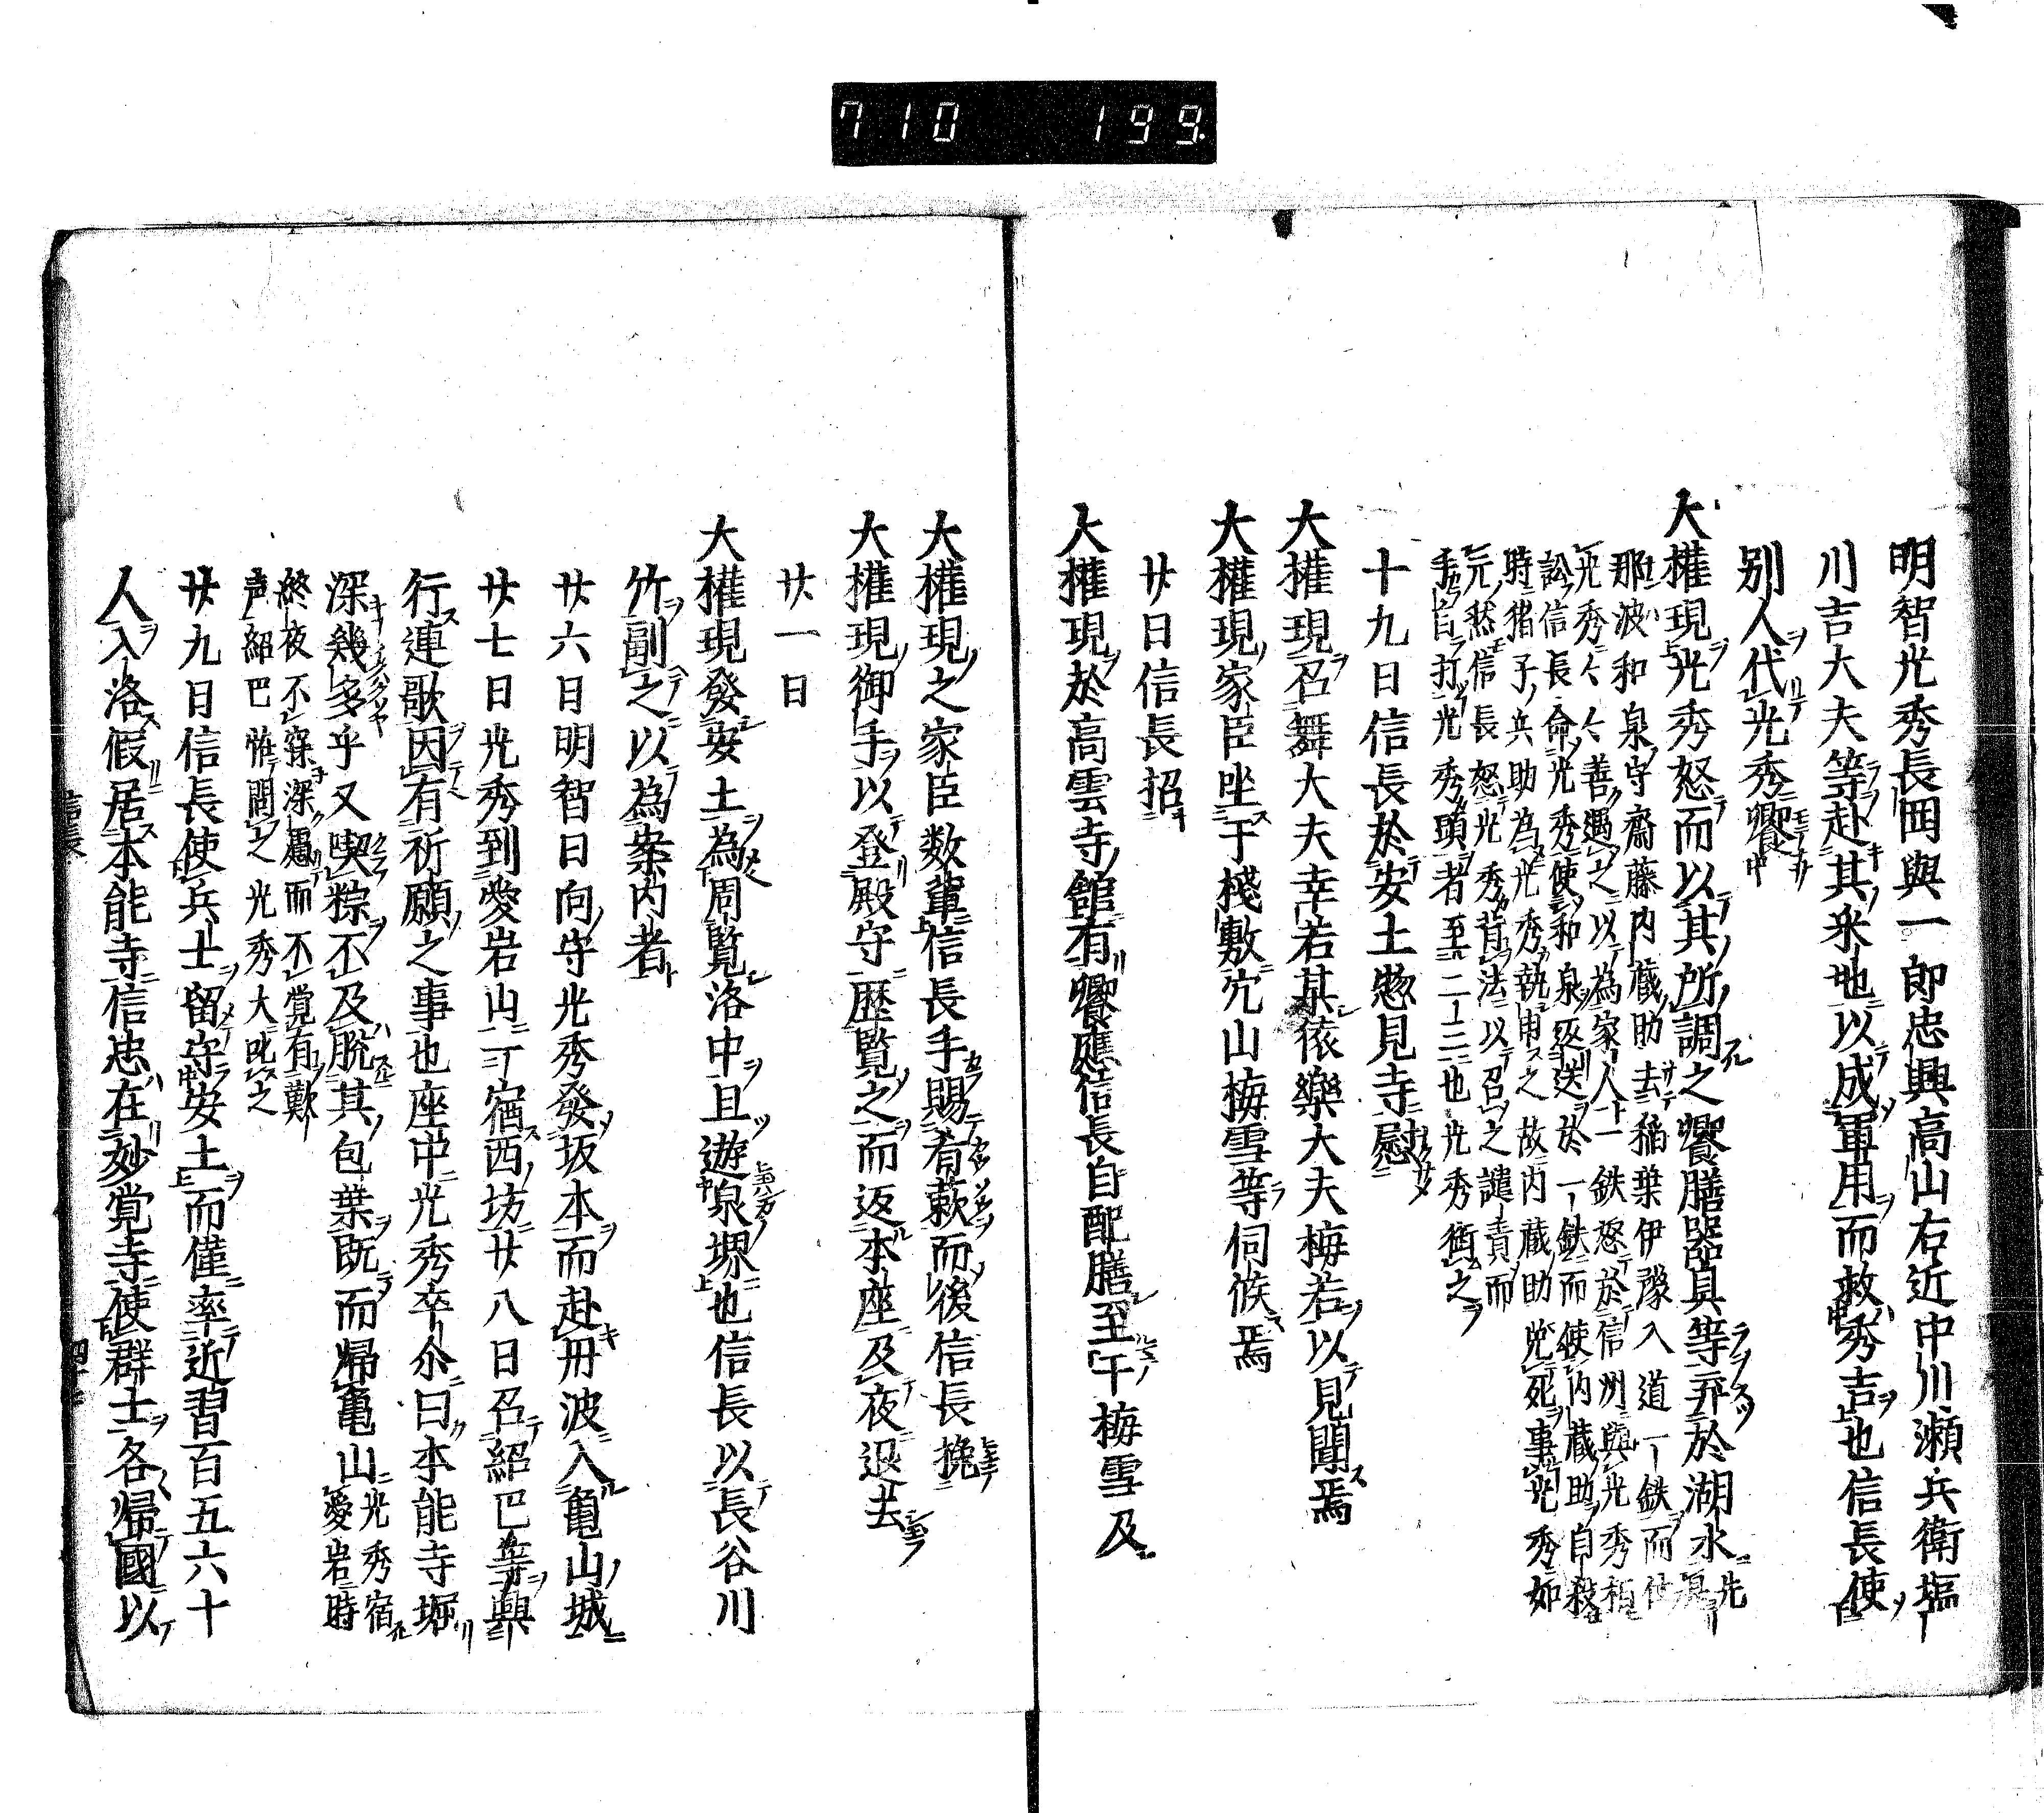 710 199.
明智光秀長岡與一郎忠興高山右近中川瀬兵衛塩
川吉大夫等赴其来也以成軍用而救秀吉也信長使
別人代光秀饗
大權現光秀怒而以其所調之饗膳器具等弃於湖水先
那波和泉守齋藤内蔵助去稲葉伊豫入道一鉄而
光秀々々善遇之以為家人一鉄怒於信州與光秀
訟信長命光秀使和泉返送於一鉄而使内蔵助自殺
時猪子兵助為光秀執申之故内蔵助免死事光秀如
元然信長怒光秀背法以召之譴責而
手自打光秀頭者至二三也光秀銜之
十九日信長於安土惣見寺慰
大權現召舞大夫幸若某依樂大夫梅若以見聞焉
大權現家臣坐于棧敷穴山梅雪等伺候焉
廿日信長招
大權現於高雲寺館有饗應信長自配膳至于梅雪及
大權現之家臣数輩信長手賜肴蔌而後信長挽
大權現御手以登殿守歴覧之而返本座及夜退去
廿一日
大權現發安土為周覧洛中且遊泉堺也信長以長谷川
竹副之以為案内者
廿六日明智日向守光秀發坂本而赴丹波入亀山城
廿七日光秀到愛岩山一宿西坊廿八日召紹巴等興
行連歌因有祈願之事也座中光秀卒尒曰本能寺堀
深幾多乎又喫粽不及脱其包葉既而帰亀山光秀宿
愛岩時
終夜不寐深慮而不覚有歎
声紹巴恠問之光秀大叱之
廿九日信長使兵士留守安土而僅率近習百五六十
人入洛假居本能寺信忠在妙覚寺使群士各帰國以
信長